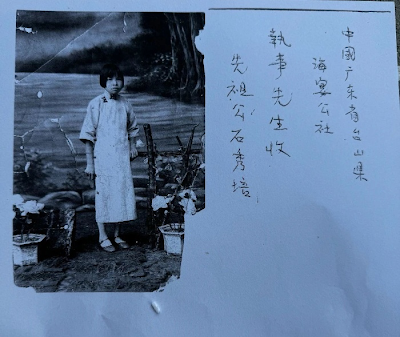 中國广东省台山
海宴公社
執事先生收
先祖公石秀培